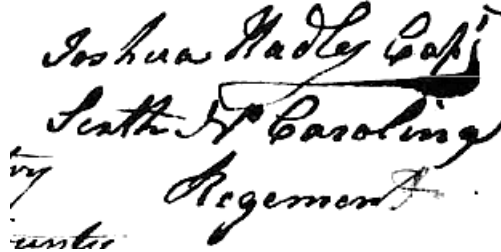 Joshua Hadley Capt
Sixth N Carolina
Regement